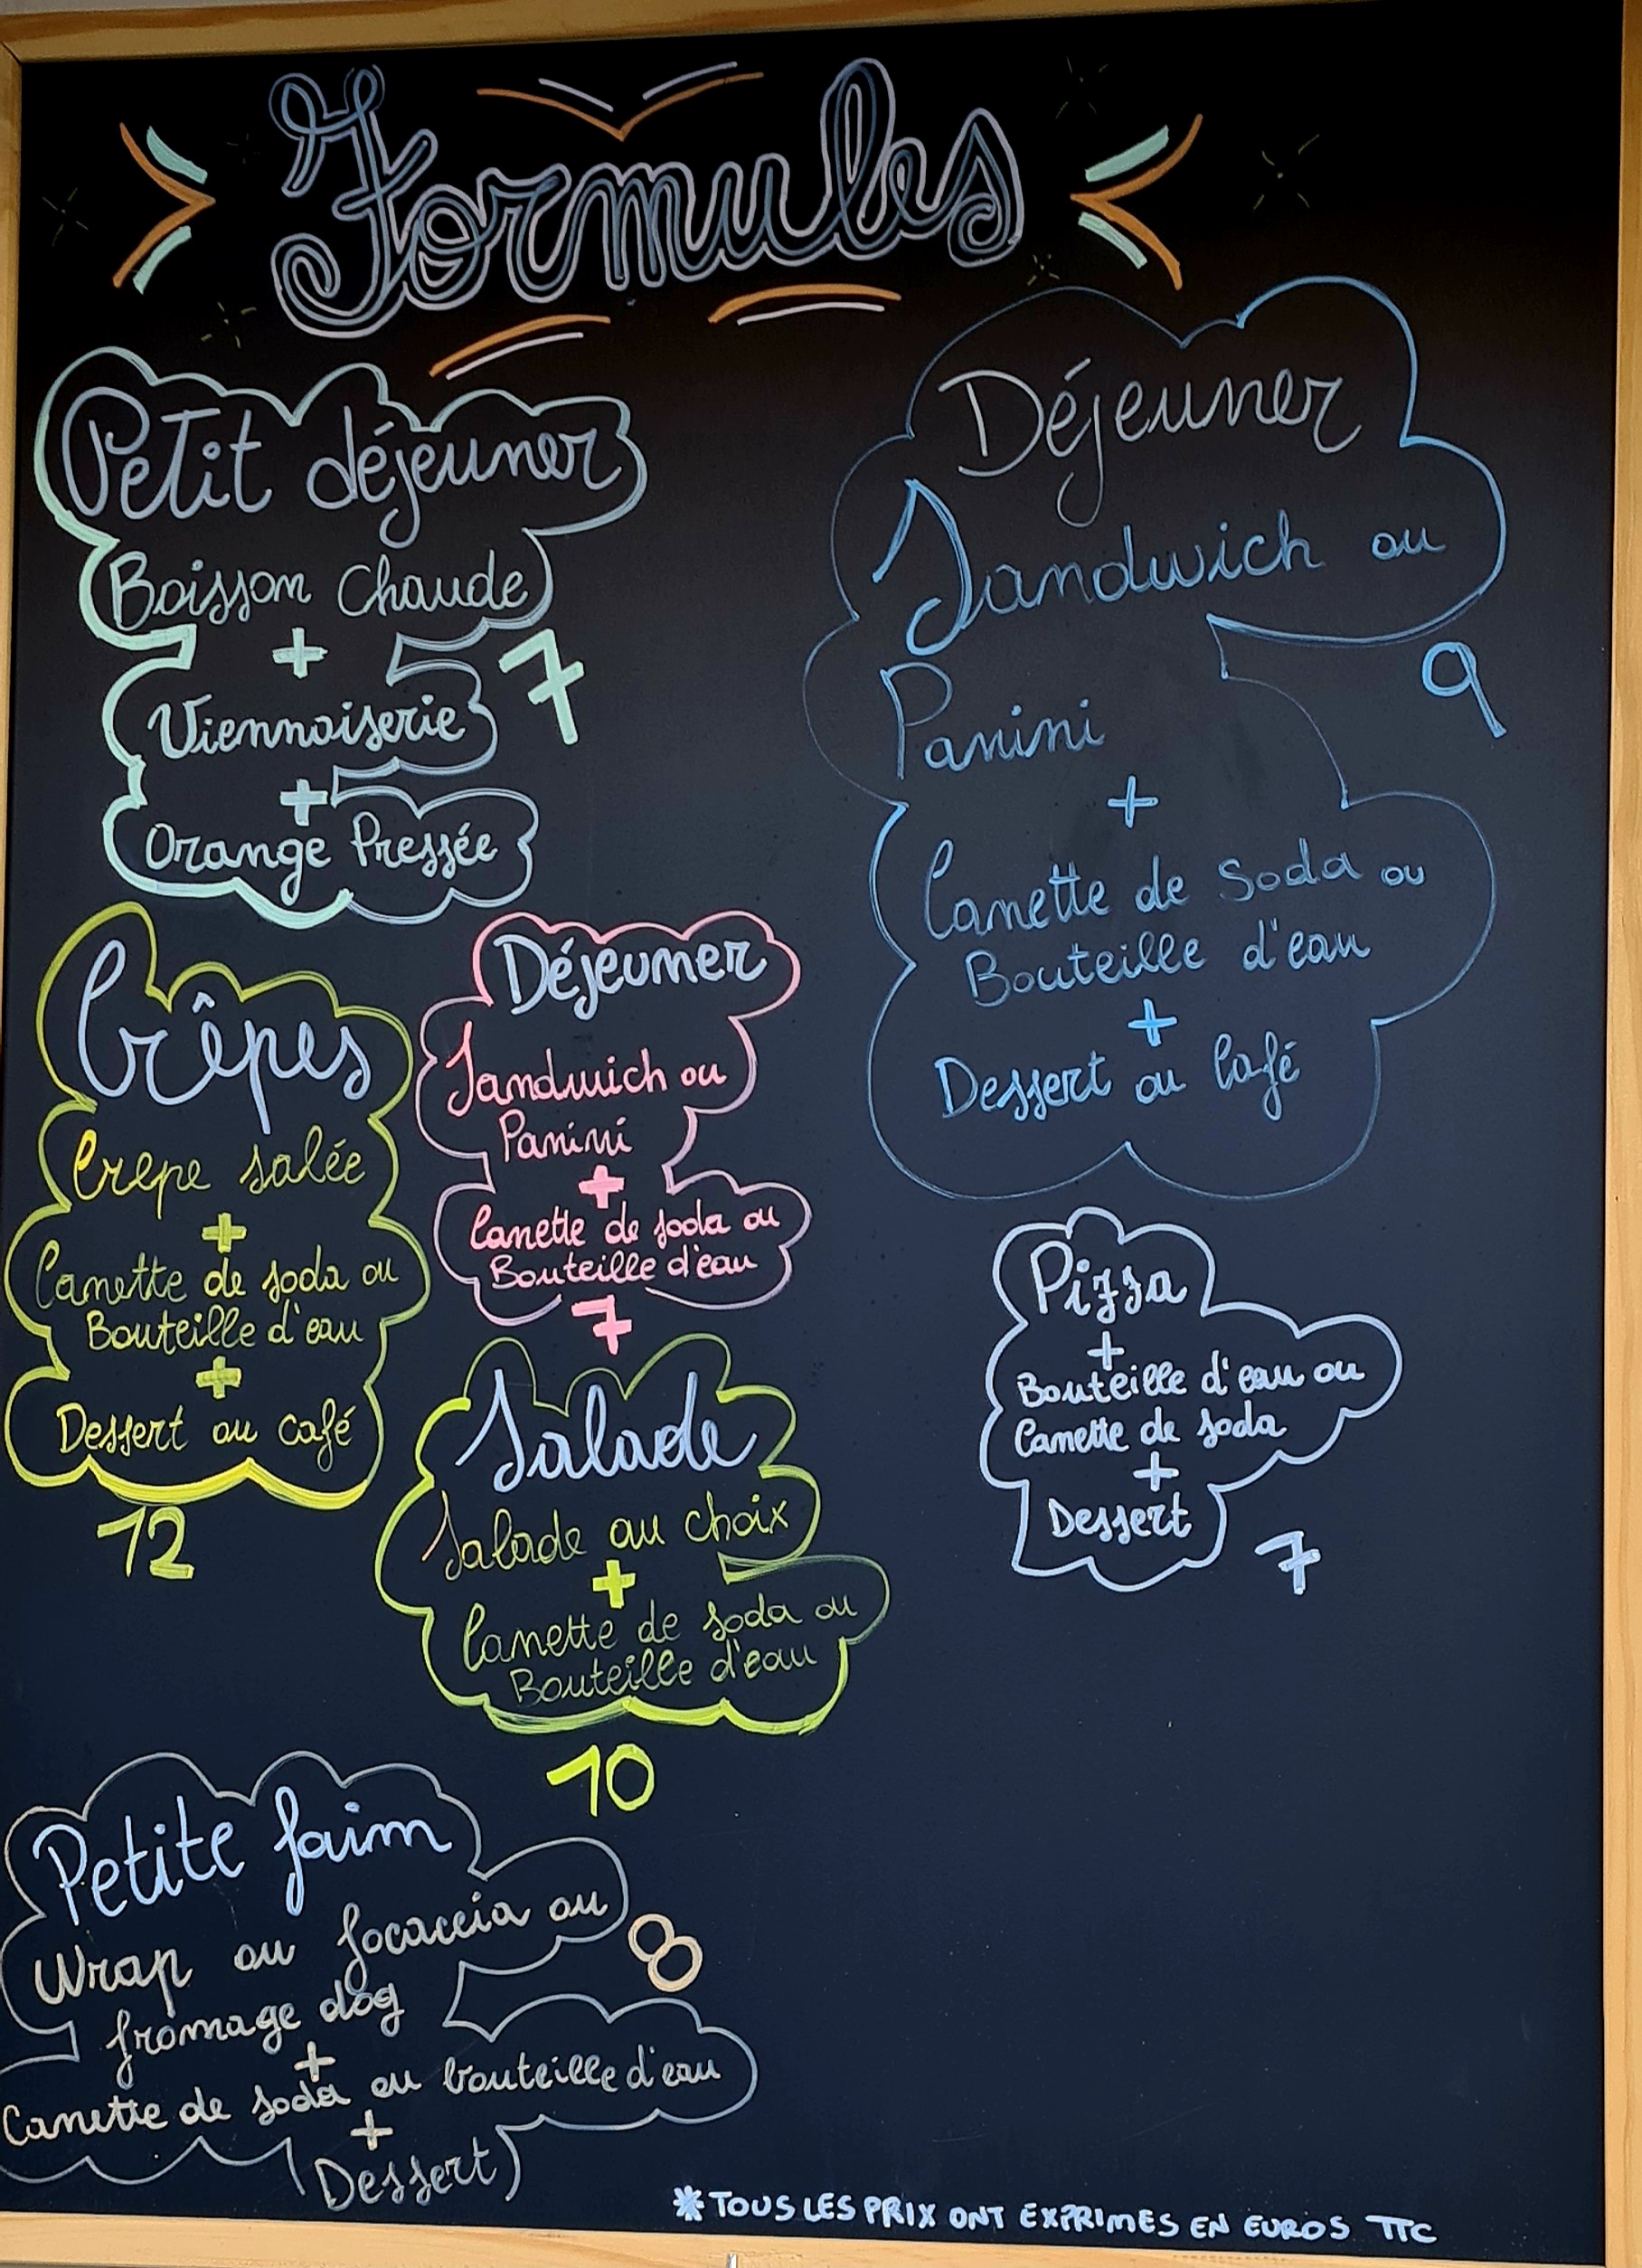 Formules
Petit déjeuner
Boisson Chaude
+
Viennoiserie
+
Orange Pressée
7
Déjeuner
Sandwich ou
Panini
+
Canette de Soda ou
Bouteille d'eau
+
Dessert ou Café
9
Crêpes
Crepe salée
+
Canette de soda ou
Bouteille d'eau
+
Dessert ou café
12
Déjeuner
Sandwich ou
Panini
+
Canette de soda ou
Bouteille d'eau
7
Salade
Salade au choix
+
Canette de soda ou
Bouteille d'eau
10
Pizza
+
Bouteille d'eau ou
Canette de soda
+
Dessert
7
Petite faim
Wrap ou focaccia ou
fromage dog
+
Canette de soda ou bouteille d'eau
+
Dessert
8
*TOUS LES PRIX ONT EXPRIMES EN EUROS TTC